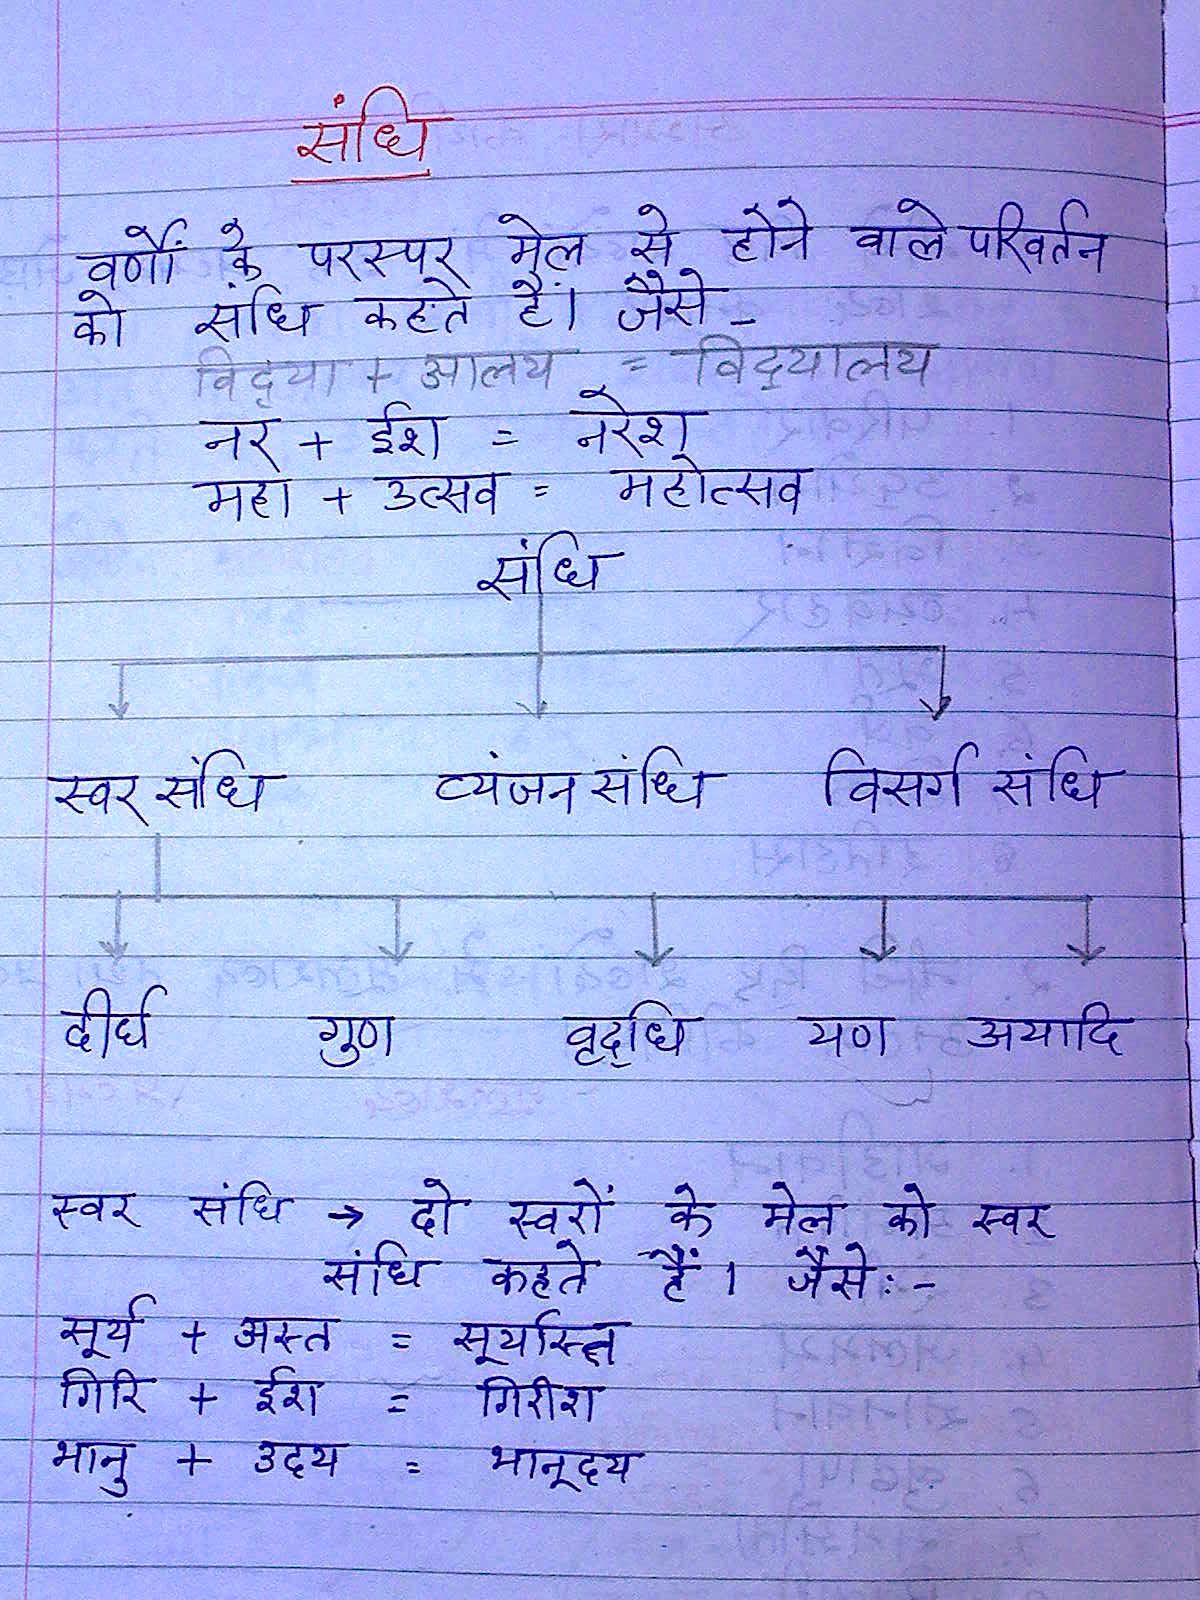 संधि
वर्णों के परस्पर मेल से होने वाले परिवर्तन
को संधि कहते हैं। जैसे -
विद्‌या + आलय = विद्‌यालय
नर + ईश = नरेश
महा + उत्सव = महोत्सव
संधि
स्वर संधि व्यंजन संधि विसर्ग संधि
दीर्घ गुण वृद्‌धि यण अयादि
स्वर संधि → दो स्वरों के मेल को स्वर
संधि कहते हैं। जैसे :-
सूर्य + अस्त = सूर्यास्त
गिरि + ईश = गिरीश
भानु + उदय = भानूदय